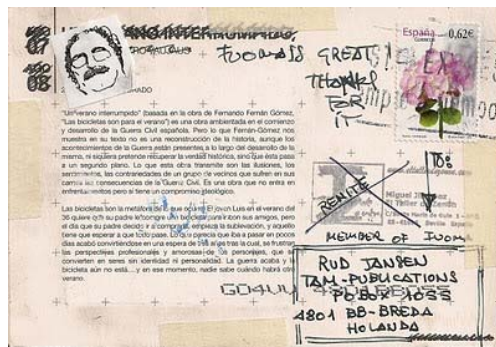 07
08
España
CORREOS
0,62€
FWOMASS GREAT!
THANKS
FOR
IT
"Un verano interrumpido" (basada en la obra de Fernando Fernán Gómez,
"Las bicicletas son para el verano") es una obra ambientada en el comienzo
y desarrollo de la Guerra Civil española. Pero lo que Fernán-Gómez nos
muestra en es una reconstrucción de la historia, aunque los
acontecimientos de la Guerra están presentes a lo largo del desarrollo de la
misma, ni siquiera pretende recuperar la verdad histórica, sino que ésta pasa
a un segundo plano. Lo que esta obra transmite son las ilusiones, los
sentimientos, las contrariedades de un grupo de vecinos que sufren en sus
carnes las consecuencias de la Guerra Civil. Es una obra que no entra en
enfrentamientos pero sí tiene un compromiso ideológico.
Las bicicletas son la metáfora de lo que El joven Luis en el verano del
36 quiere que su padre le compre una bicicleta para ir con sus amigos, pero
el día que su padre decide ir a comprarla, empieza la sublevación, y aquello
tiene que esperar a que todo pase. Lo que parecía que iba a pasar en pocos
días acabó convirtiéndose en una espera de tras la cual, se frustran
las perspectivas profesionales y amorosas de personajes, que se
convierten en seres sin identidad ni personalidad. La guerra acaba y la
bicicleta aún no está....y en ese momento, nadie sabe cuándo habrá otro
verano.
TO:
REMITE
Miguel Jiménez
MEMBER OF IUOMA
RUD JANSEN
TAM-PUBLICATIONS
P.O BOX 1055
4801 BB-BREDA
HOLANDA